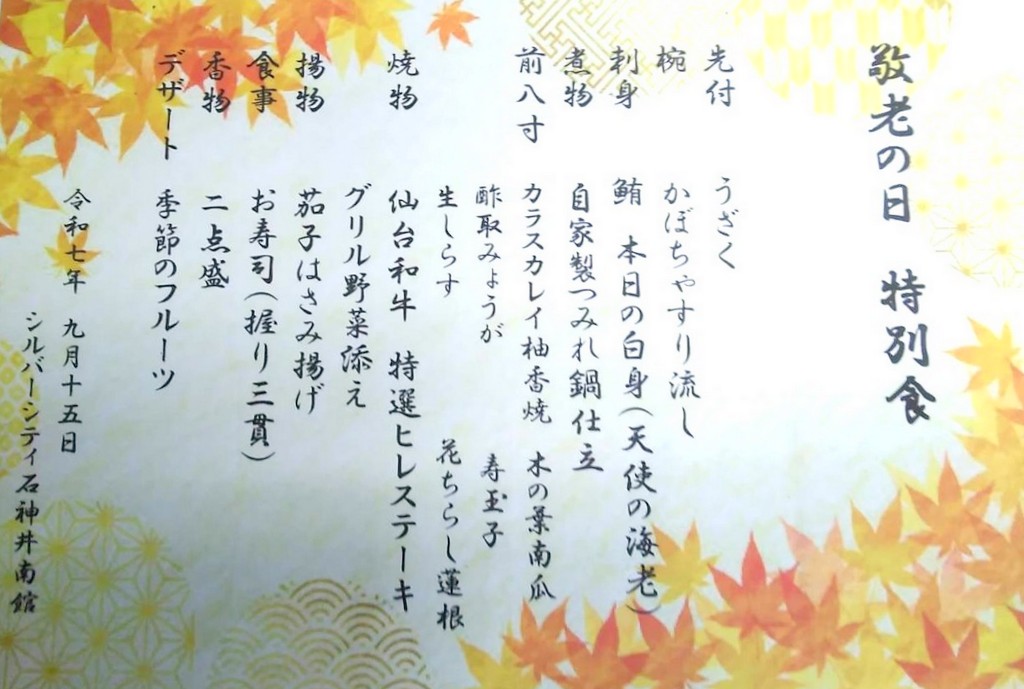 敬老の日　特別食
先付　うざく
椀　かぼちゃすり流し
刺身　鮪　本日の白身(天使の海老)
煮物　自家製つみれ鍋仕立
前八寸　カラスカレイ柚香焼　木の葉南瓜
酢取みょうが　寿玉子
生しらす　花ちらし蓮根
焼物　仙台和牛　特選ヒレステーキ
グリル野菜添え
揚物　茄子はさみ揚げ
食事　お寿司(握り三貫)
香物　二点盛
デザート　季節のフルーツ
令和七年　九月十五日
シルバーシティ石神井南館